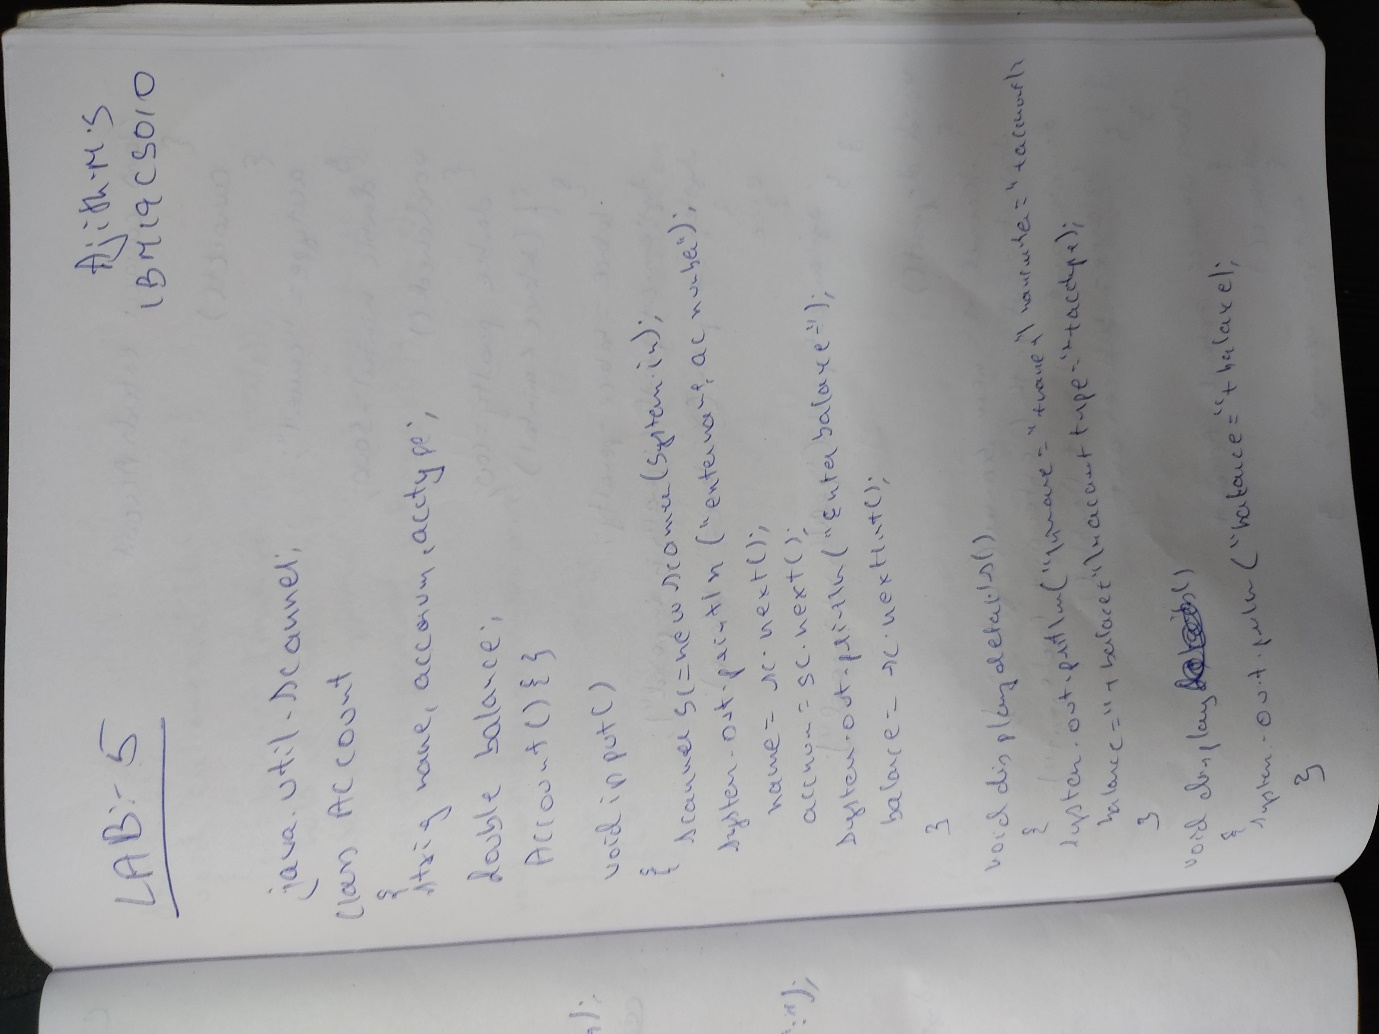 Ajith.M.S
1BM19CS010
LAB:- 5
java.util.Scanner;
class Account
{
String name, accnum, acctype;
double balance;
Account() { }
void input()
{
Scanner sc=new Scanner(System.in);
System.out.println("enter name, ac number");
name = sc.next();
accnum = sc.next();
System.out.println("Enter balance=");
balance = sc.nextInt();
}
void displaydetails()
{
System.out.println("\nname="+name+"\nnumber="+accnum+"\n
balance="+balance+"\naccount type="+acctype);
}
void display()
{
System.out.println("balance="+balance);
}
);
);